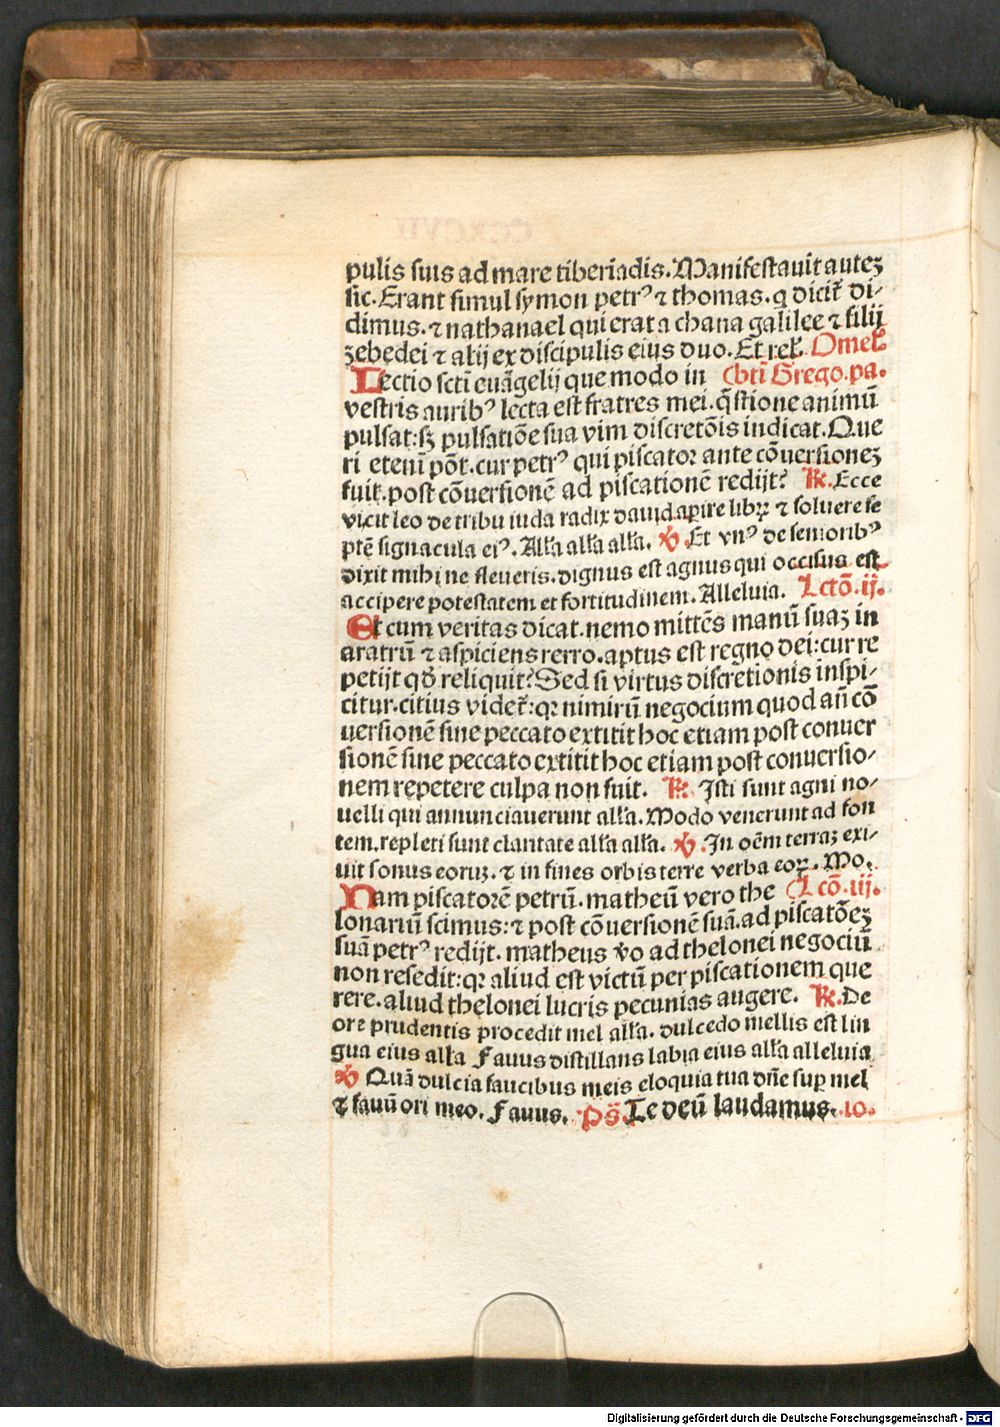 pulis suis ad mare tiberiadis. Manifestauit autez
sic. Erant simul symon petrꝰ ⁊ thomas. q̄ dicit᷑ di⸗
dimus. ⁊ nathanael qui erat a chana galilee ⁊ filij
zebedei ⁊ alij ex discipulis eius duo. Et rel̃. Omel̃.
Lectio scti euāgelij que modo in (bti Grego. pa.
vestris auribꝰ lecta est fratres mei. q̄stione animū
pulsat: sꝫ pulsatiōe sua vim discretōis indicat. Que
ri etenī pōt. cur petrꝰ qui piscator ante cōuersionez
fuit. post cōuersionē ad piscationē redijt? ℞. Ecce
vicit leo de tribu iuda radix dauid aꝑire libꝝ ⁊ soluere se
ptē signacula eiꝰ. All̃a all̃a all̃a. ℣. Et vnꝰ de senioribꝰ
dixit mihi ne fleueris. dignus est agnus qui occisus est
accipere potestatem et fortitudinem. Alleluia. Lctō. ij.
Et cum veritas dicat. nemo mittēs manū suaz in
aratrū ⁊ aspiciens retro. aptus est regno dei: cur re
petijt qd̄ reliquit? Sed si virtus discretionis inspi⸗
citur. citius videt᷑: qꝛ nimirū negocium quod añ cō
uersionē sine peccato extitit hoc etiam post conuer
sionē sine peccato extitit hoc etiam post conuersio⸗
nem repetere culpa non fuit. ℞. Isti sunt agni no⸗
uelli qui annunciauerunt all̃a. Modo venerunt ad fon
tem. repleti sunt claritate all̃a all̃a. ℣. In oēm terraz exi⸗
uit sonus eoruz. ⁊ in fines orbis terre verba eoꝝ. Mo.
Nam piscatorē petrū. matheū vero the (Lcō. iij.
lonariū scimus: ⁊ post cōuersionē suā. ad piscatōez
suā petrꝰ redijt. matheus v̄o ad thelonei negociū
non resedit: qꝛ aliud est victū per piscationem que
rere. aliud thelonei lucris pecunias augere. ℞. De
ore prudentis procedit mel all̃a. dulcedo mellis est lin
gua eius all̃a Fauus distillans labia eius all̃a alleluia
℣ Quā dulcia faucibus meis eloquia tua dñe suꝑ mel
⁊ fauū ori meo. Fauus. Ps̄. Te deū laudamus. 10.
Digitalisierung gefördert durch die Deutsche Forschungsgemeinschaft - DFG